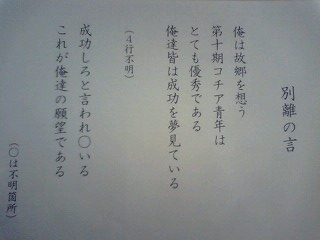 別離の言
俺は故郷を想う
第十期コチア青年は
とても優秀である
俺達皆は成功を夢見ている
（４行不明）
成功しろと言われ〇いる
これが俺達の願望である
（〇は不明箇所）